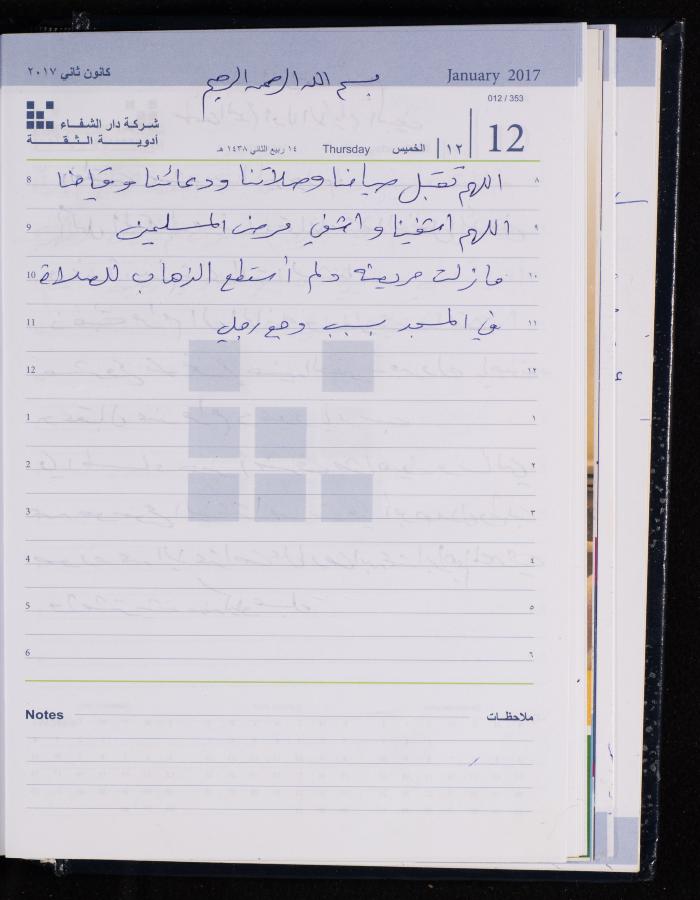 كانون ثاني ٢٠١٧
بسم الله الرحمن الرحيم
January 2017
012 / 353
شركة دار الشفاء
أدويــة الثقــة
١٤ ربيع الثاني ١٤٣٨ هـ
Thursday
الخميس
١٢
12
8 اللهم تقبل صيامنا وصلاتنا ودعائنا وقيامنا ٨
9 اللهم اشفينا واشفي مرضى المسلمين ٩
10 مازلت مريضه ولم أستطع الذهاب للصلاة ١٠
11 في المسجد بسبب وجع رجلي ١١
12 ١٢
1 ١
2 ٢
3 ٣
4 ٤
5 ٥
6 ٦
Notes ملاحظات